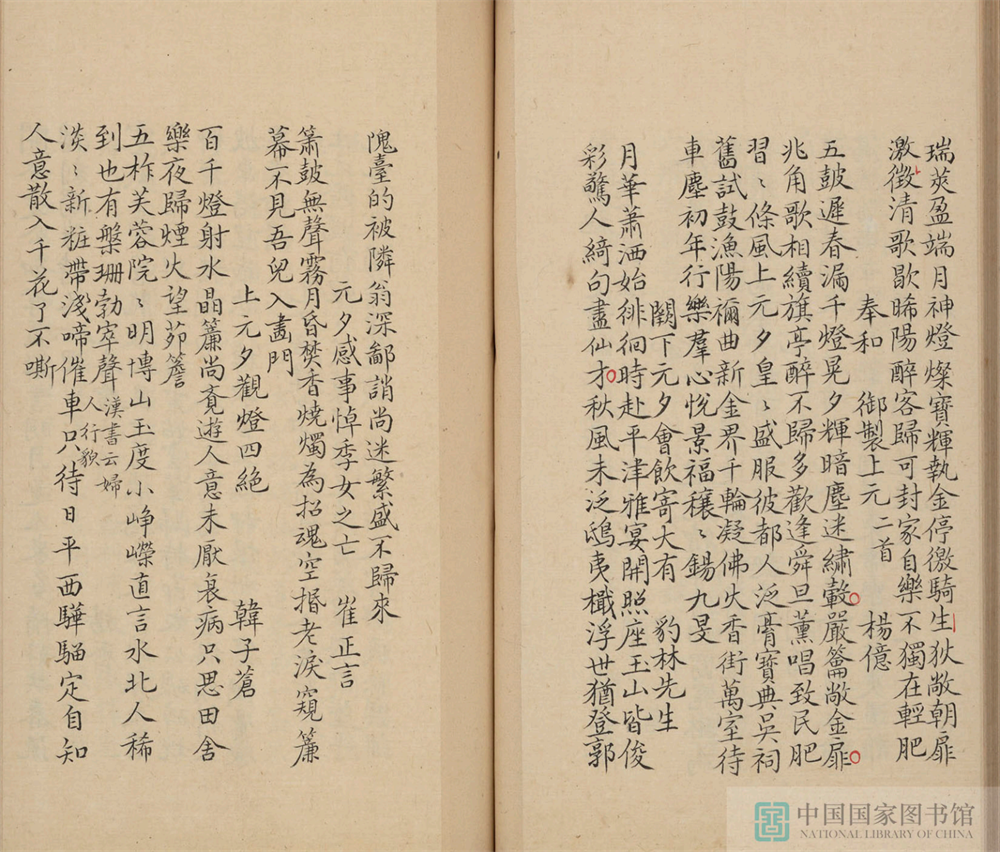 瑞莢盈端月神燈燦寶輝執金停徼騎生狄敞朝扉
激徵清歌歇晞陽醉客歸可封家自樂不獨在輕肥
奉和　御製上元二首　楊億
五鼓遲春漏千燈晃夕輝暗塵迷繡轂嚴籥敞金扉
兆角歌相續旗亭醉不歸多歡逢舜旦薫唱致民肥
習〻條風上元夕皇〻盛服彼都人泛膏寶典吳祠
舊試鼓漁陽禰曲新金界千輪凝佛火香街萬室待
車塵初年行樂羣心悅景福穰〻錫九旻
闕下元夕會飲寄大有　豹林先生
月華蕭洒始徘徊時赴平津雅宴開照座玉山皆俊
彩驚人綺句盡仙才秋風未泛鴟夷檝浮世猶登郭
隗臺的被隣翁深鄙誚尚迷繁盛不歸來
元夕感事悼季女之亡　崔正言
簫鼓無聲霧月昏焚香燒燭為招魂空揩老淚窺簾
幕不見吾兒入畫門
上元夕觀燈四絕　韓子蒼
百千燈射水晶簾尚覔遊人意未厭衰病只思田舍
樂夜歸煙火望茆簷
五柞芙蓉院〻明博山玉度小峥嶸直言水北人稀
到也有槃珊勃窣聲漢書云婦人行貌
淡〻新粧帶淺啼催車只待日平西驊騮定自知
人意散入千花了不嘶
中国国家图书馆
NATIONAL LIBRARY OF CHINA